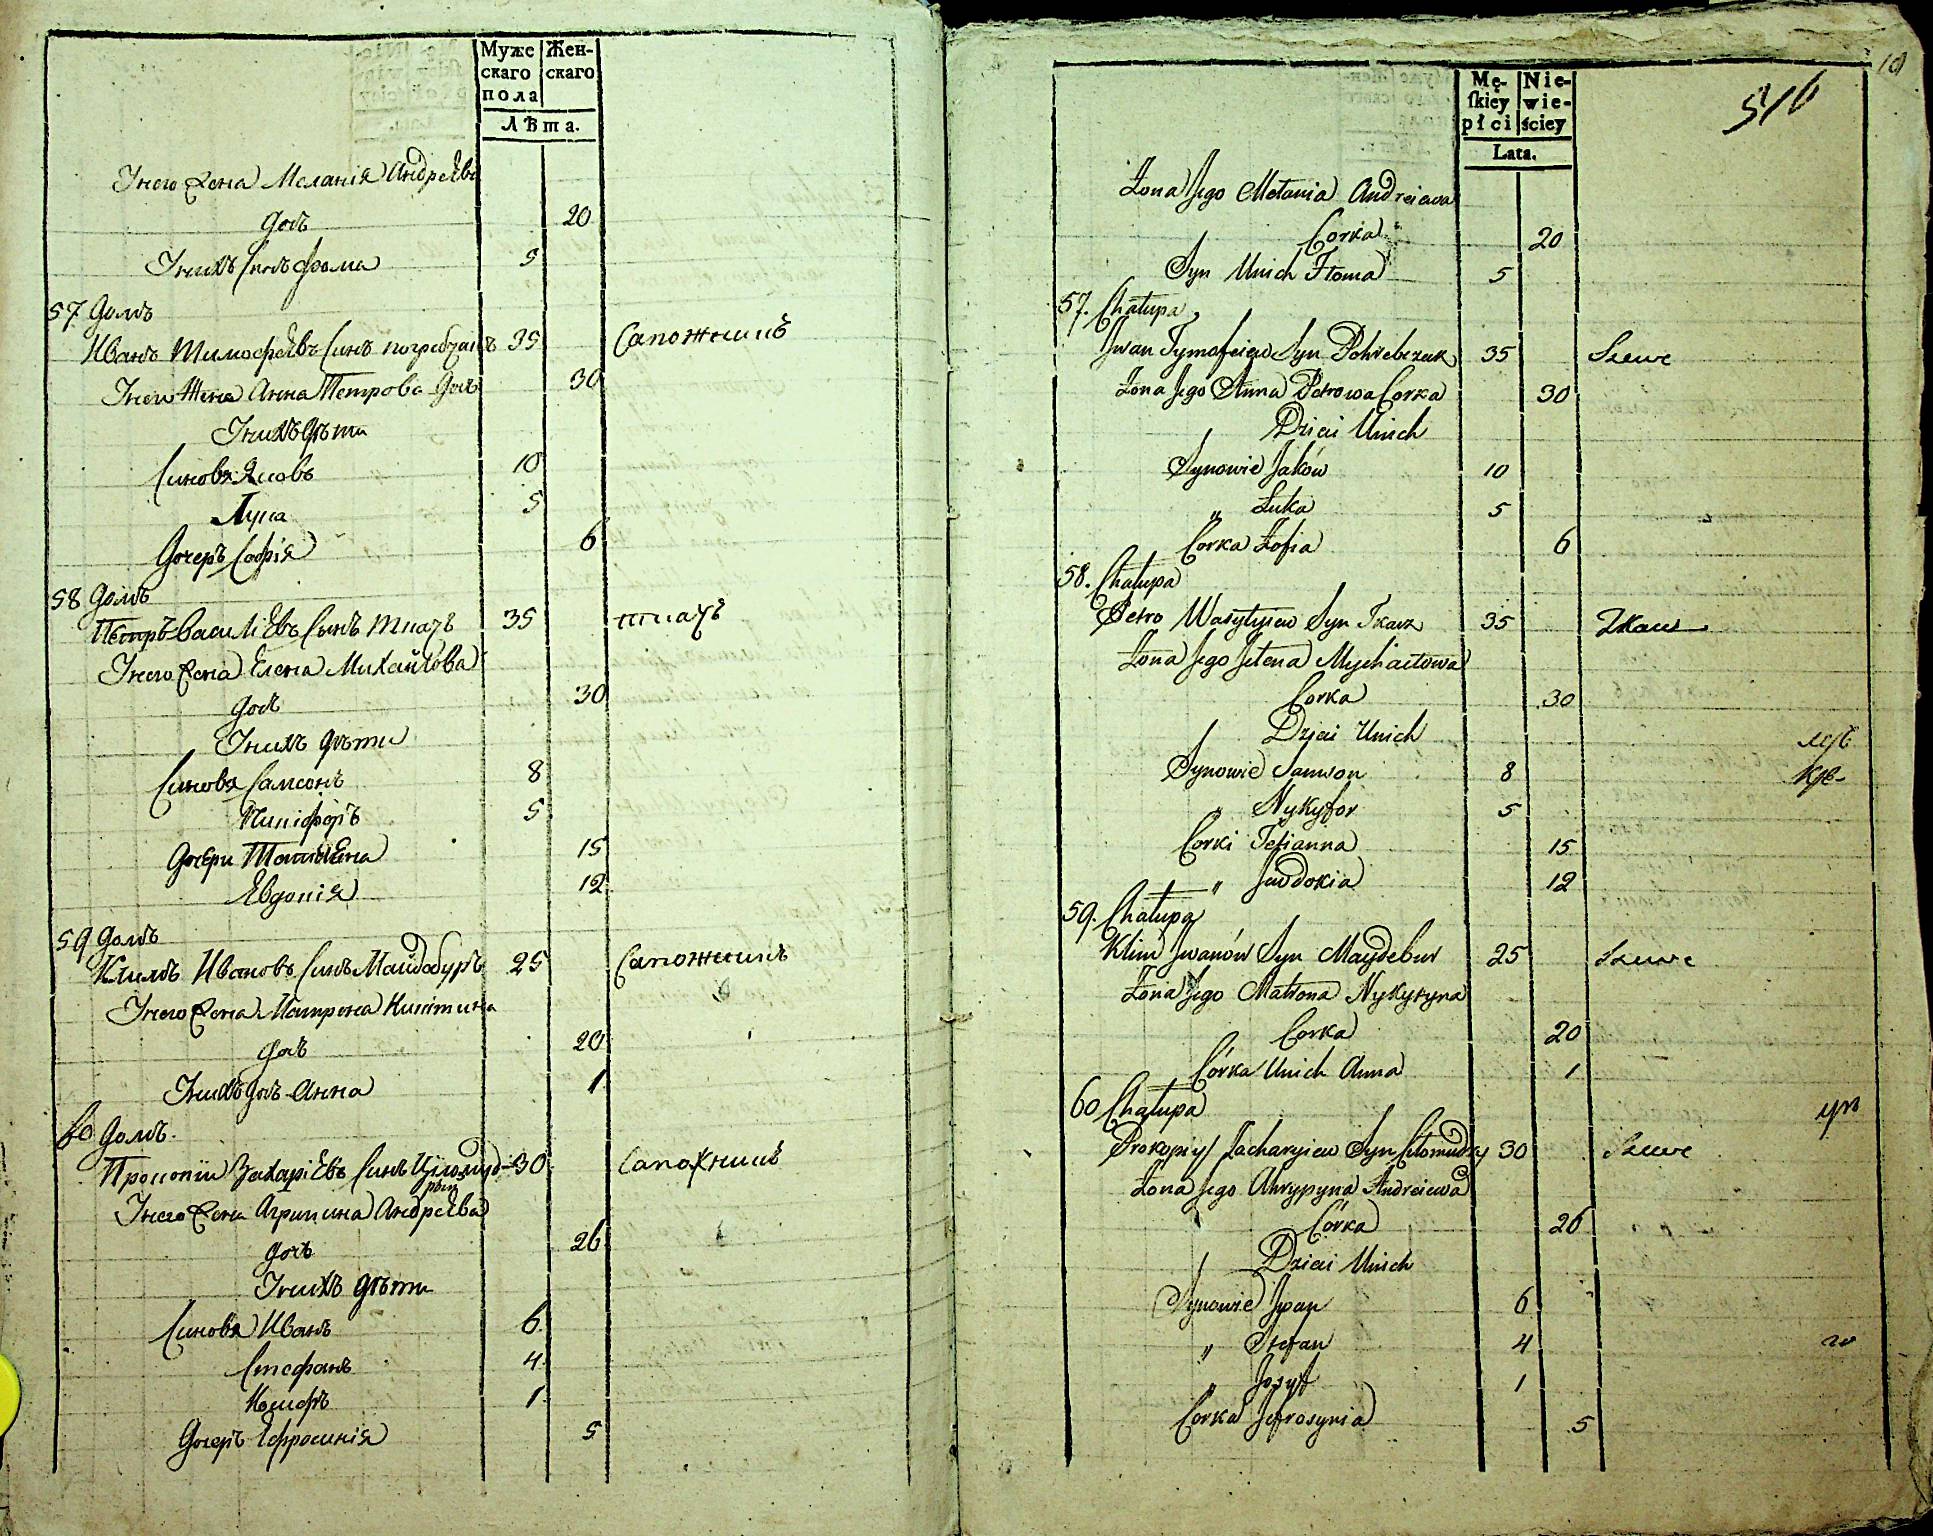 Муже Жен-
скаго скаго
пола
Лѣта.
Унего Жена Меланія Андреева
дочь 20
Унихъ Синъ Фома 5
57 Домъ
Иванъ Тимофѣевъ Синъ погребзакъ 35 Сапожникъ
Унего Жена Анна Петрова дочь 30
Унихъ дѣти
Синовя Яковъ 10
Лука 5
Дочеръ Софія 6
58 Домъ
Петръ Василіевъ Синъ Ткачъ 35 ткачъ
Унего Жена Елена Михайлова
дочь 30
Унихъ дѣти
Синовя Самсонъ 8
Никіфоръ 5
Дочери Татіяна 15
Евдокія 12
59 Домъ
Климъ Ивановъ Синъ Майдебуръ 25 Сапожникъ
Унего Жена Матрона Никітина
дочь 20
Унихъ дочь Анна 1
60 Домъ.
Прокопій Захаріевъ Синъ Цѣломуд- 30 Сапожникъ
рый
Унего Жена Агрипина Андреева
дочь 26
Унихъ дѣти
Синовя Иванъ 6
Стефанъ 4
Иосифъ 1
Дочеръ Ефросинія 5
Mę- Nie-
ſkiey wie-
płci ściey
Lata.
516
Żona Jego Mełania Andreiewa
Corka 20
Syn Unich Floma 5
57. Chałupa
Jwan Tymofeiew Syn Pohrebczak 35 Szewc
Żona Jego Anna Petrowa Corka 30
Dzieci Unich
Synowie Jaków 10
" Łuka 5
Corka Zofia 6
58. Chałupa
Petro Wasylyiew Syn Tkacz 35 Tkacz
Żona Jego Jełena Mychaiłowa
Corka 30
Dzieci Unich
Synowie Samson 8
" Nykyfor 5
Corki Tetianna 15
" Jawdokia 12
59. Chałupa
Klim Jwanów Syn Maydebur 25 Szewc
Żona Jego Matrona Nykytyna
Corka 20
Córka Unich Anna 1
60 Chałupa
Prokopiy Zacharyiew Syn Cełomudry 30 Szewc
Żona Jego Ahrypyna Andreiewa
Córka 26
Dzieci Unich
Synowie Jwan 6
" Stefan 4
" Josyf 1
Corka Jefrosynia 5